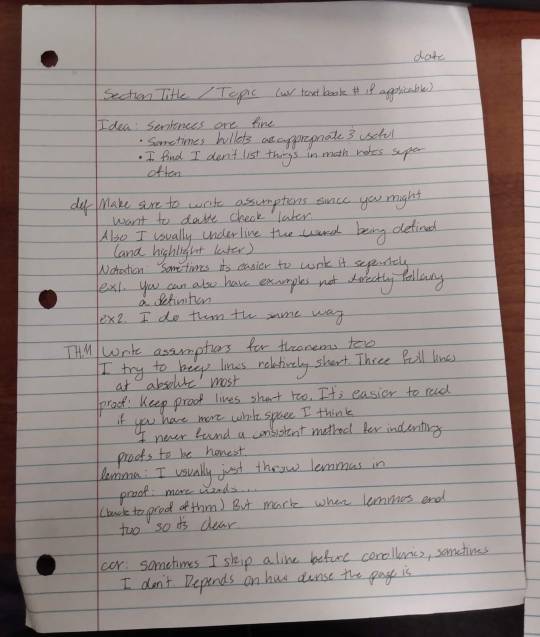 date
Section Title / Topic (w/ text book # if applicable)
Idea: Sentences are fine
• Sometimes bullets as appropriate & useful
• I find I don't list things in math notes super
often
def Make sure to write assumptions since you might
want to double check later.
Also I usually underline the word being defined
(and highlight later)
Notation Sometimes its easier to write it seperately
ex1. You can also have examples not directly following
a definition
ex2. I do them the same way
THM Write assumptions for theorems too
I try to keep lines relatively short. Three full lines
at absolute most
proof: Keep proof lines short too. It's easier to read
if you have more white space I think
I never found a consistent method for indenting
proofs to be honest
lemma: I usually just throw lemmas in
proof: more words...
(back to proof of thm) But mark when lemmas end
too so its clear
cor: sometimes I skip a line before corollaries, sometimes
I don't. Depends on how dense the page is